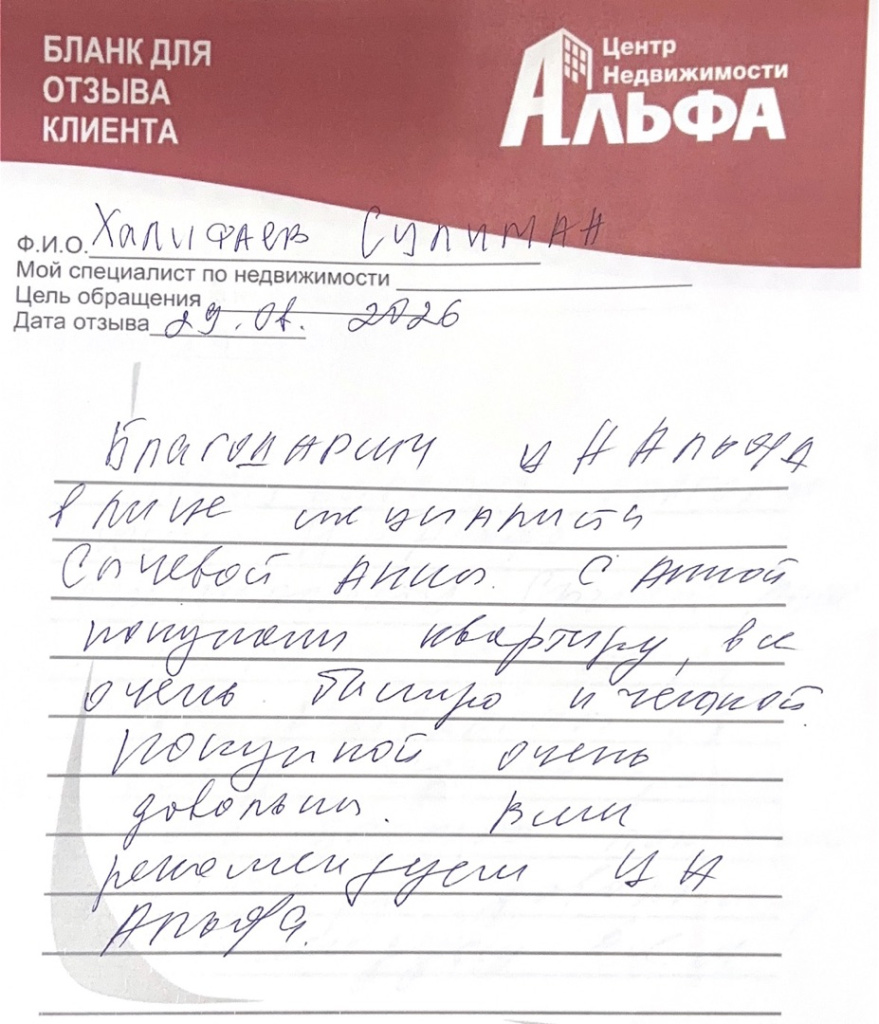 БЛАНК ДЛЯ
ОТЗЫВА
КЛИЕНТА
Центр
Недвижимости
АЛЬФА
Ф.И.О. Халифаев Сулиман
Мой специалист по недвижимости
Цель обращения
Дата отзыва 29.01. 2026
Благодарим ЦН Альфа
в лице специалиста
Сычевой Анны. С Анной
покупали квартиру, все
очень быстро и четко
покупкой очень
довольны. Всем
рекомендуем ЦН
Альфа.